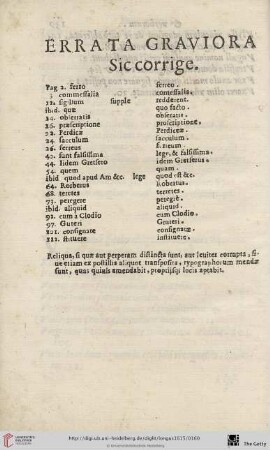 ERRATA GRAVIORA
Sic corrige.
Pag 2. ferro ferreo.
3 commessalia comessalia.
12. sigillum supple redderent.
ibid. quæ quo facto.
24 obierratis obieratis.
26. proscriptione proscriptionē.
32 Perdicæ Perdiccæ.
34 sacculum sæculum.
36 serreus
42. sunt falsissima lege, & falsissima.
44 Iidem Gretsero idem Gretserus.
54 quem quam.
ibid quod apud Am &c. lege quod est &c.
64. Rocberus Robertus.
68. teretes terretes.
73. peregere peregrè.
ibid. aliquid aliquod.
92. cum a Clodio cum Clodio.
97. Guteri Geuteri.
101. consignate consignatæ
111. stituere instituere.
Reliqua, si quæ aut perperam distincta sunt, aut leuiter corrupta, si-
ue etiam ex postillis aliquot transposita, typographorum mendæ
sunt, quas quiuis emendabit, proprijsq́; locis aptabit.
The Getty